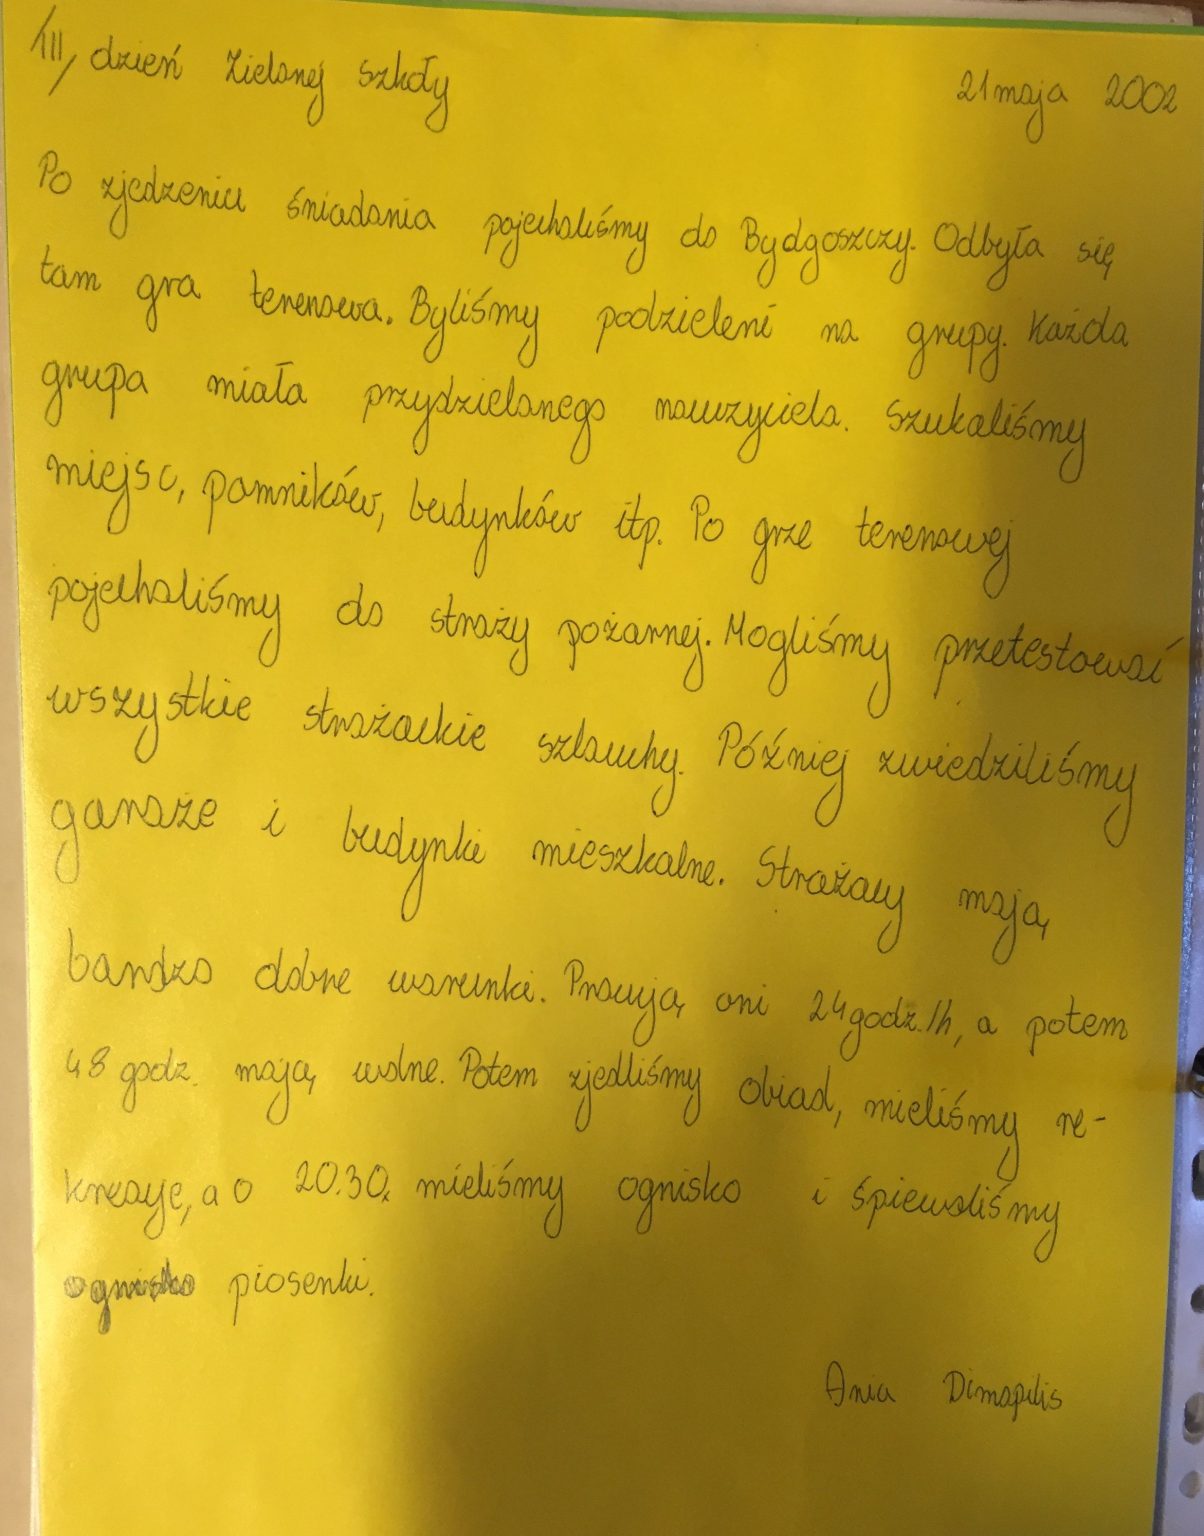 III, dzień Zielonej Szkoły 21 maja 2002
Po zjedzeniu śniadania pojechaliśmy do Bydgoszczy. Odbyła się
tam gra terenowa. Byliśmy podzieleni na grupy. Każda
grupa miała przydzielonego nauczyciela. Szukaliśmy
miejsc, pomników, budynków itp. Po grze terenowej
pojechaliśmy do straży pożarnej. Mogliśmy przetestować
wszystkie strażackie szlauchy. Później zwiedziliśmy
garaże i budynki mieszkalne. Strażacy mają
bardzo dobre warunki. Pracują oni 24 godz./h, a potem
48 godz. mają wolne. Potem zjedliśmy obiad, mieliśmy re-
kreację, a o 20.30. mieliśmy ognisko i śpiewaliśmy
ognisko piosenki.
Ania Dimapilis